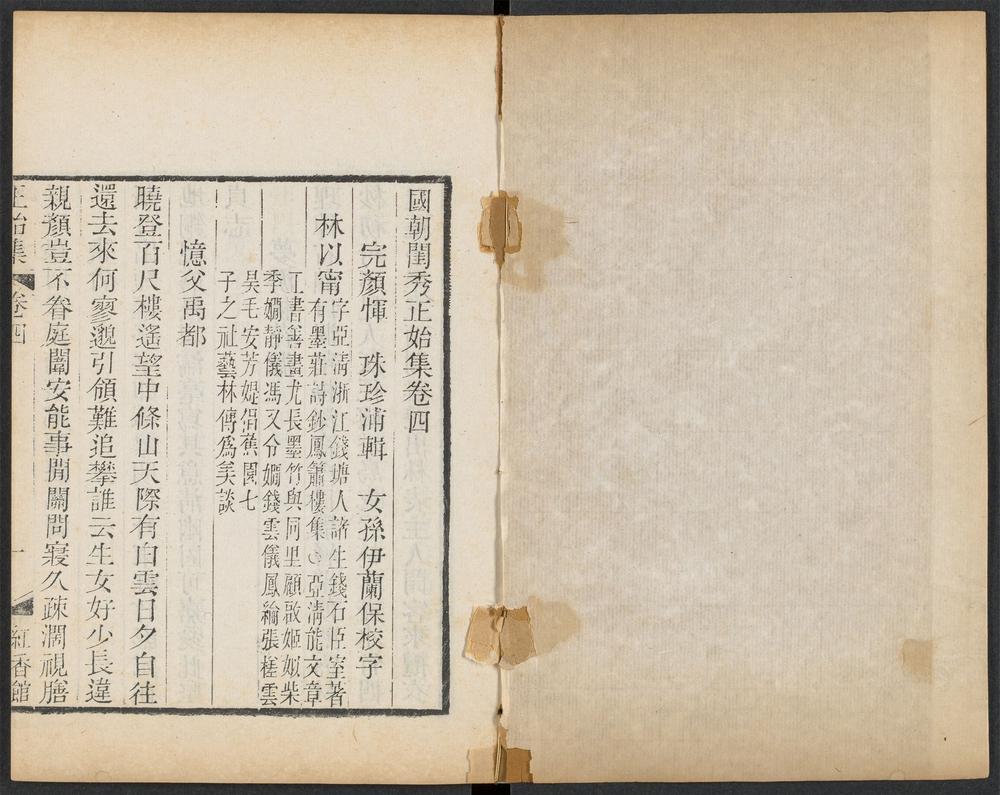 國朝閨秀正始集卷四
完顏惲　珠珍浦輯　女孫伊蘭保校字
林以甯字亞清浙江錢塘人諸生錢石臣室著
有墨莊詩鈔鳳簫樓集○亞清能文章
工書善畫尤長墨竹與同里顧啟姬姒柴
季嫺靜儀馮又令嫺錢雲儀鳳綸張槎雲
昊毛安芳媞倡蕉園七
子之社藝林傳為美談
憶父禹都
曉登百尺樓遙望中條山天際有白雲日夕自往
還去來何寥邈引領難追攀誰云生女好少長違
親顏豈不眷庭闈安能事閒關問寢久疎濶視膳
正始集　卷四　一　紅香館